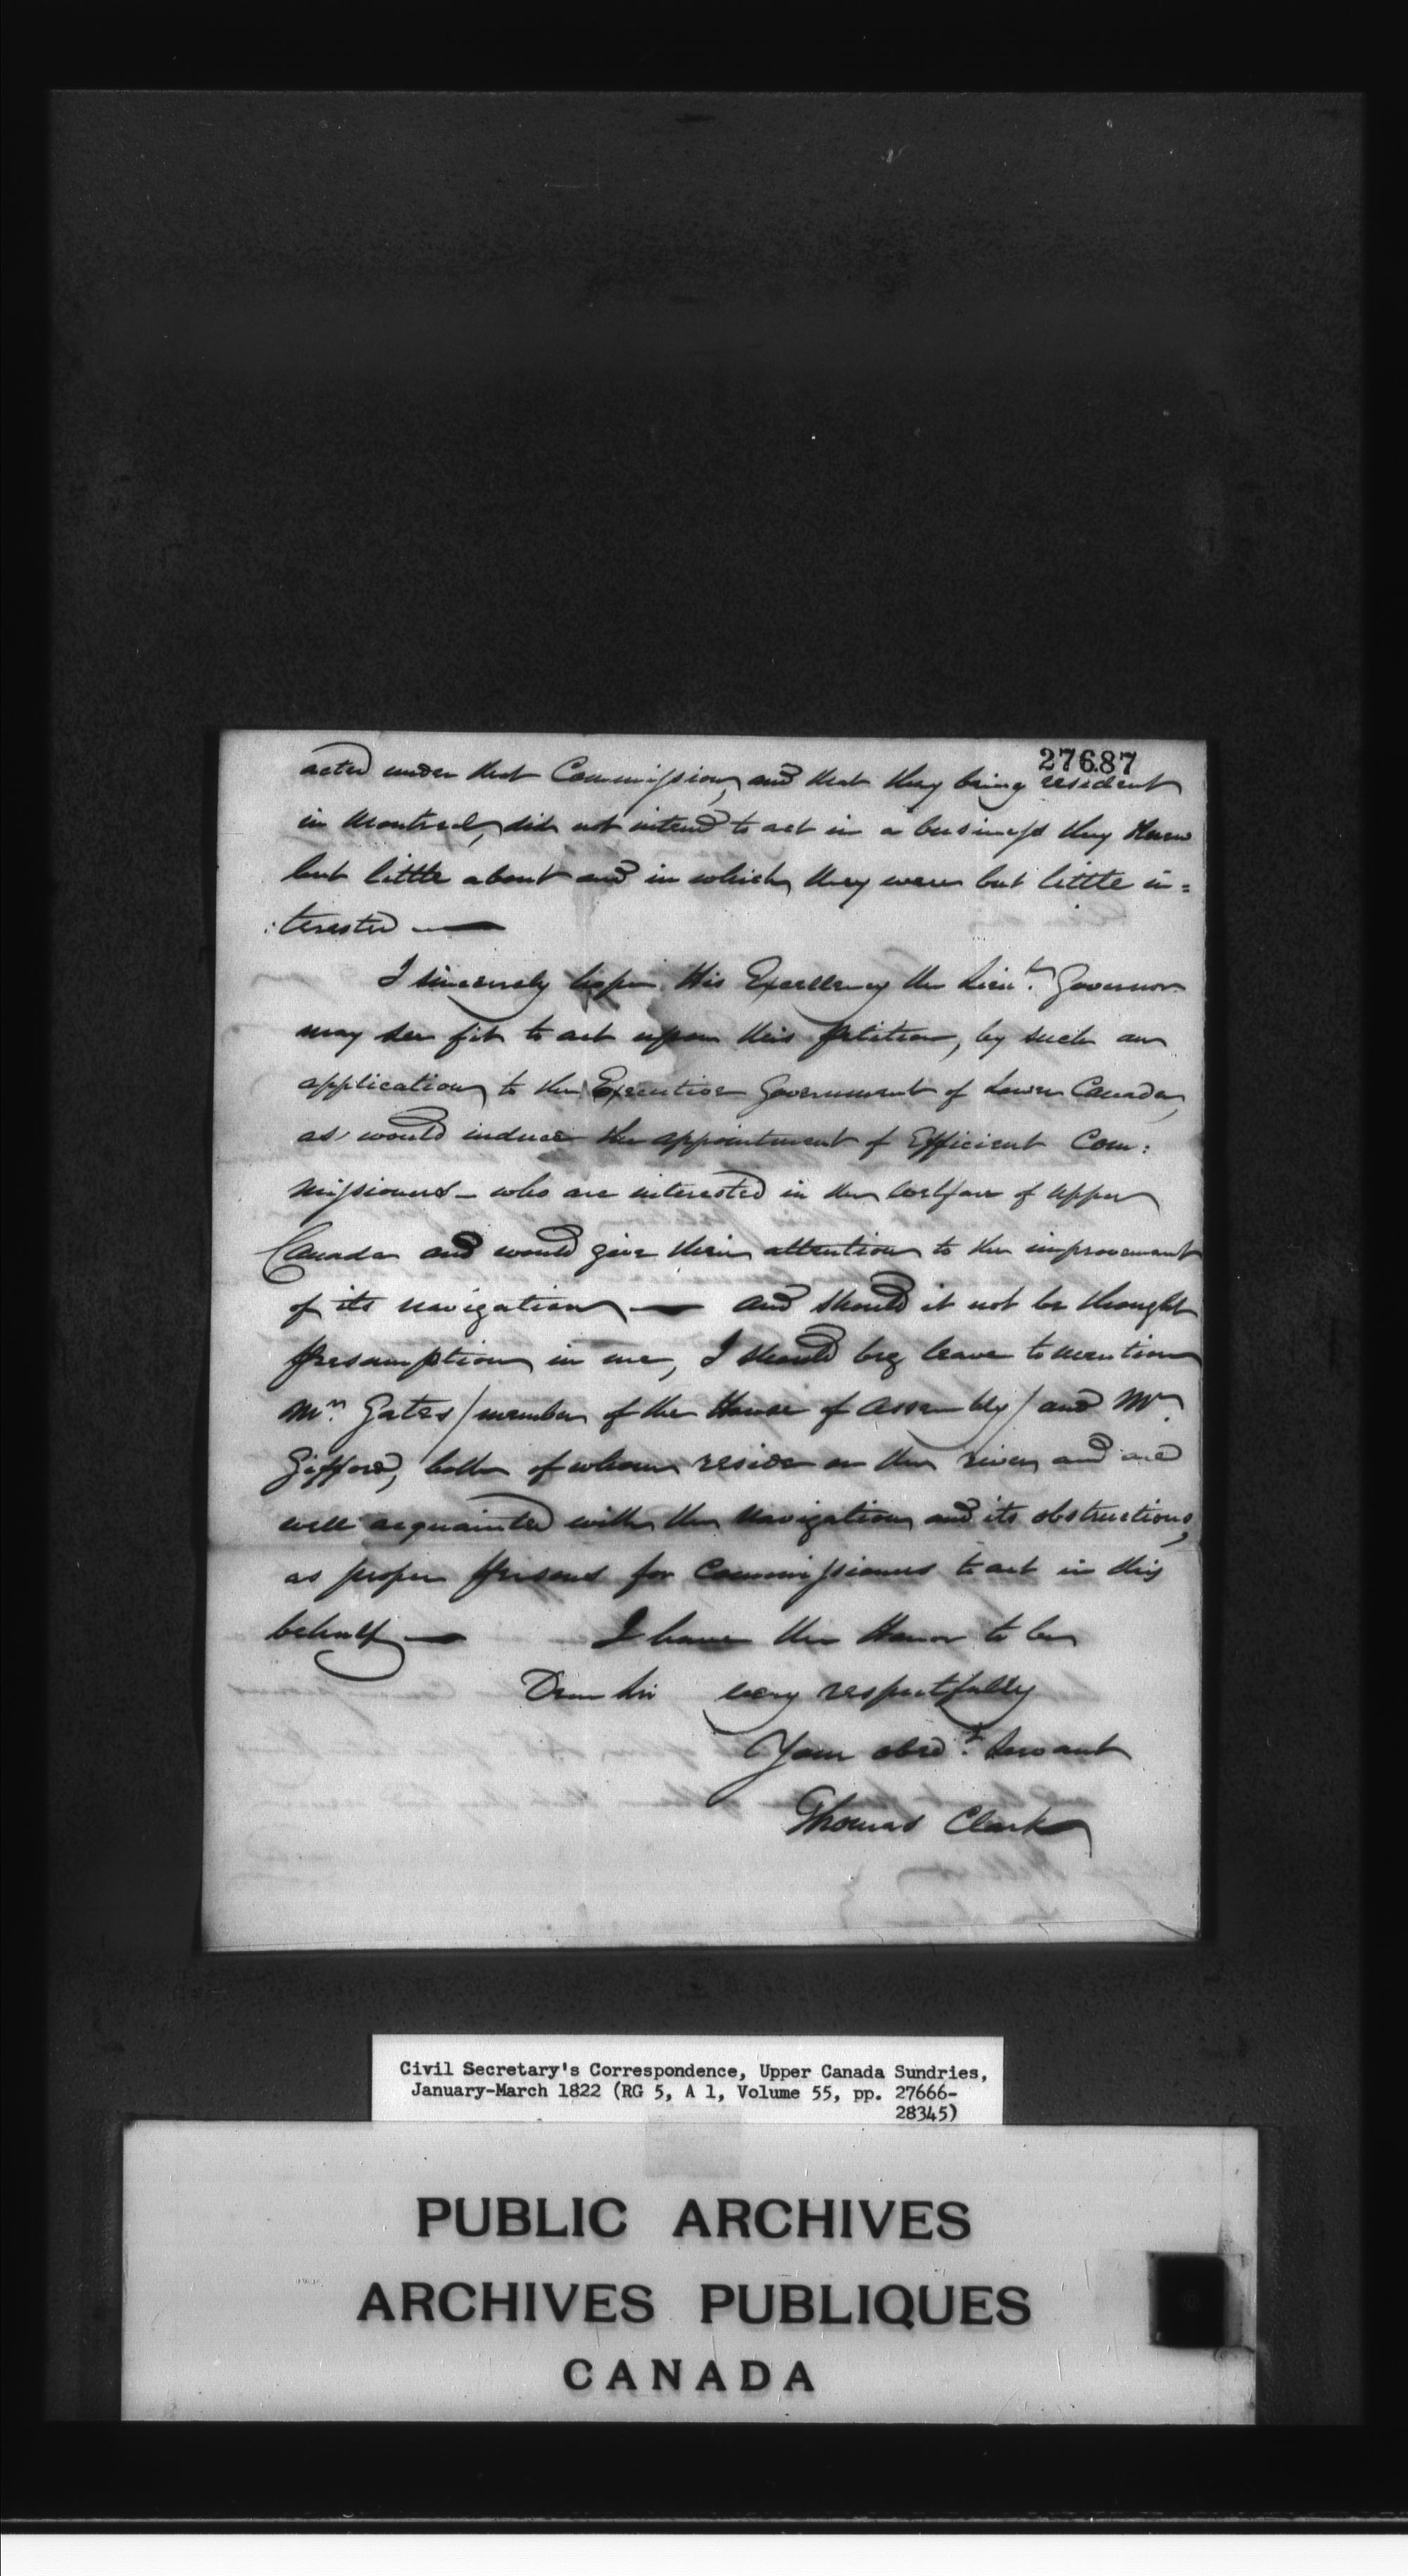 27687
acted under that Commission, and that they being resident
in Montreal, did not intend to act in a business they knew
but little about and in which they were but little in=
:terested —
I sincerely hope His Excellency the Lieut. Governor
may see fit to act upon this petition, by such an
application to the Executive Government of Lower Canada,
as would induce the appointment of Efficient Com:
missioners – who are interested in the welfare of upper
Canada and would give their attention to the improvement
of its navigation — and should it not be thought
presumption in me, I should beg leave to mention
Mr. Yates / member of the House of Assembly / and Mr.
Gifford, both of whom reside on the river and are
well acquainted with the Navigation and its obstructions,
as proper persons for Commissioners to act in this
behalf — I have the Honor to be
Dear Sir very respectfully
Your obedt. Servant
Thomas Clark
Civil Secretary's Correspondence, Upper Canada Sundries,
January-March 1822 (RG 5, A 1, Volume 55, pp. 27666-
28345)
PUBLIC ARCHIVES
ARCHIVES PUBLIQUES
CANADA